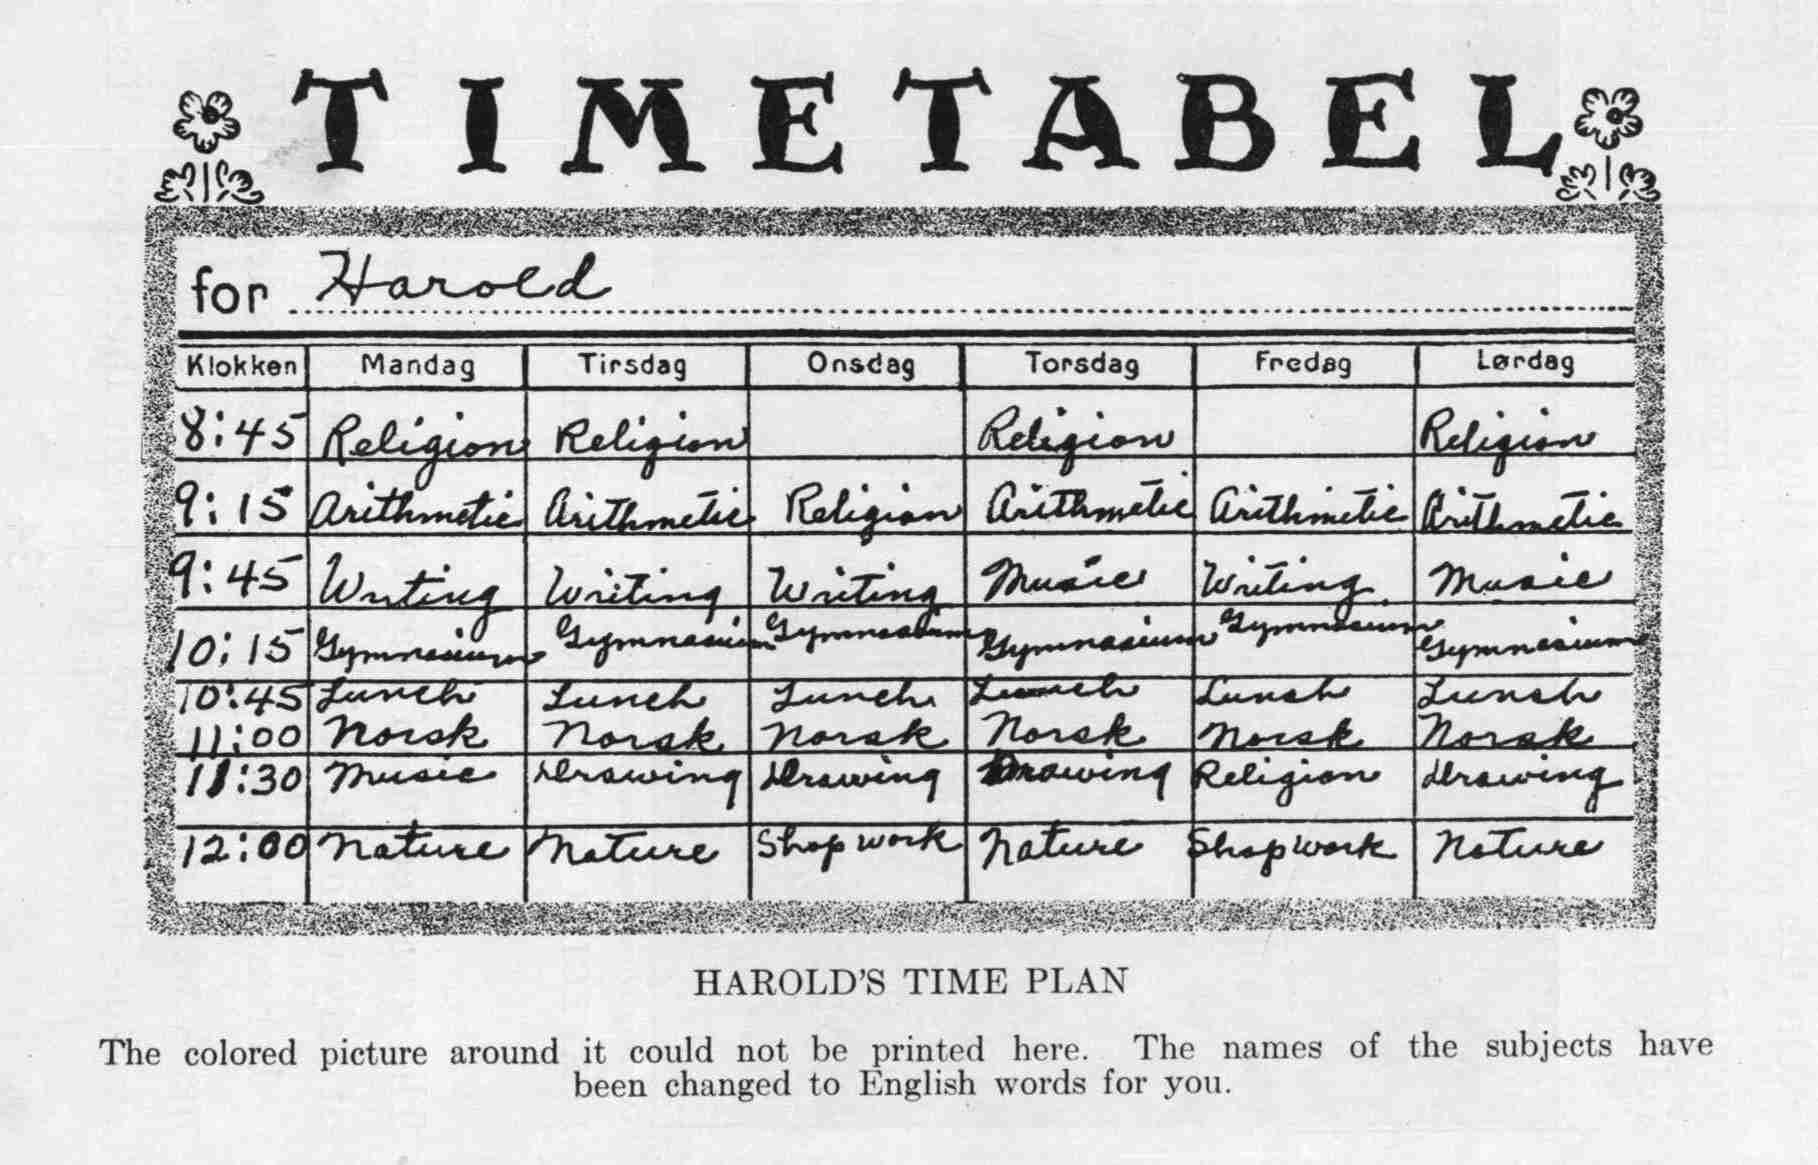 TIMETABEL
for Harold
Klokken Mandag Tirsdag Onsdag Torsdag Fredag Lørdag
8:45 Religion Religion Religion Religion
9:15 Arithmetic Arithmetic Religion Arithmetic Arithmetic Arithmetic
9:45 Writing Writing Writing Music Writing Music
10:15 Gymnasium Gymnasium Gymnasium Gymnasium Gymnasium Gymnasium
10:45 Lunch Lunch Lunch Lunch Lunch Lunch
11:00 Norsk Norsk Norsk Norsk Norsk Norsk
11:30 Music Drawing Drawing Drawing Religion Drawing
12:00 Nature Nature Shopwork Nature Shopwork Nature
HAROLD'S TIME PLAN
The colored picture around it could not be printed here. The names of the subjects have
been changed to English words for you.